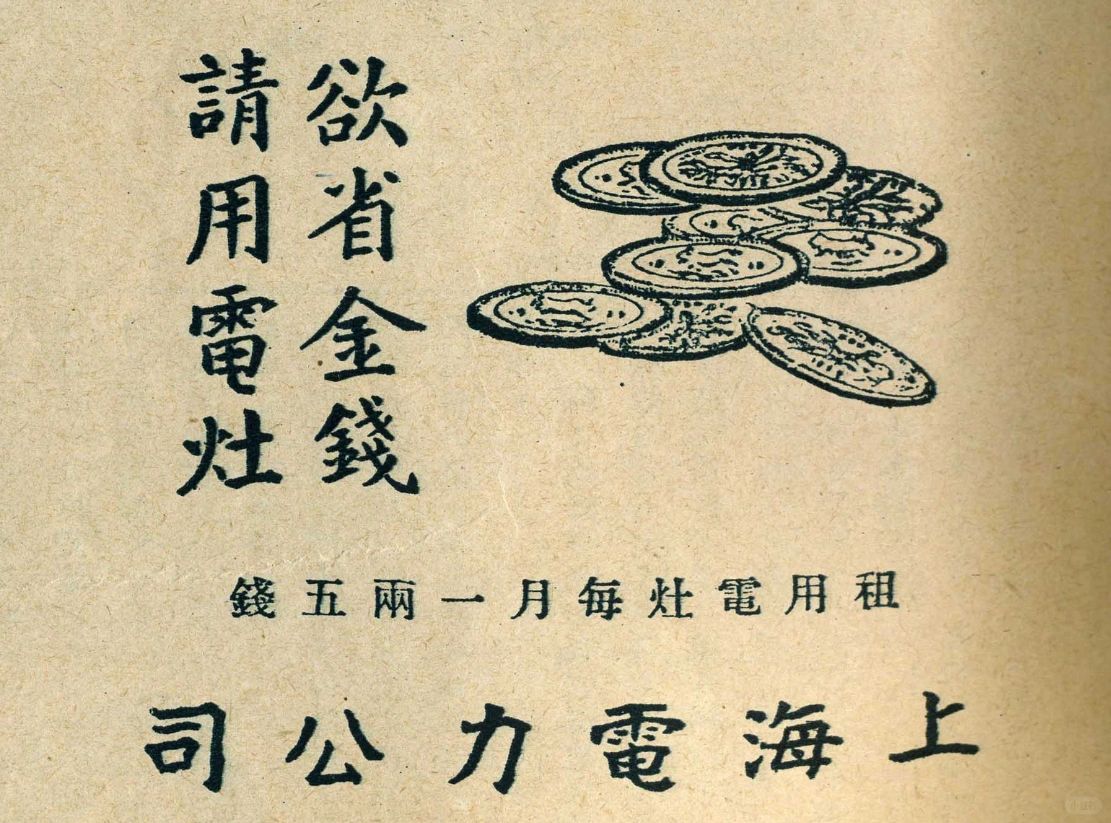 欲省金錢
請用電灶
租用電灶每月一兩五錢
上海電力公司